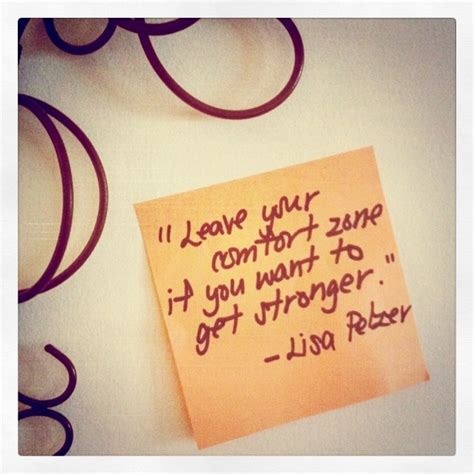 "Leave your
comfort zone
if you want to
get stronger."
- Lisa Pelzer